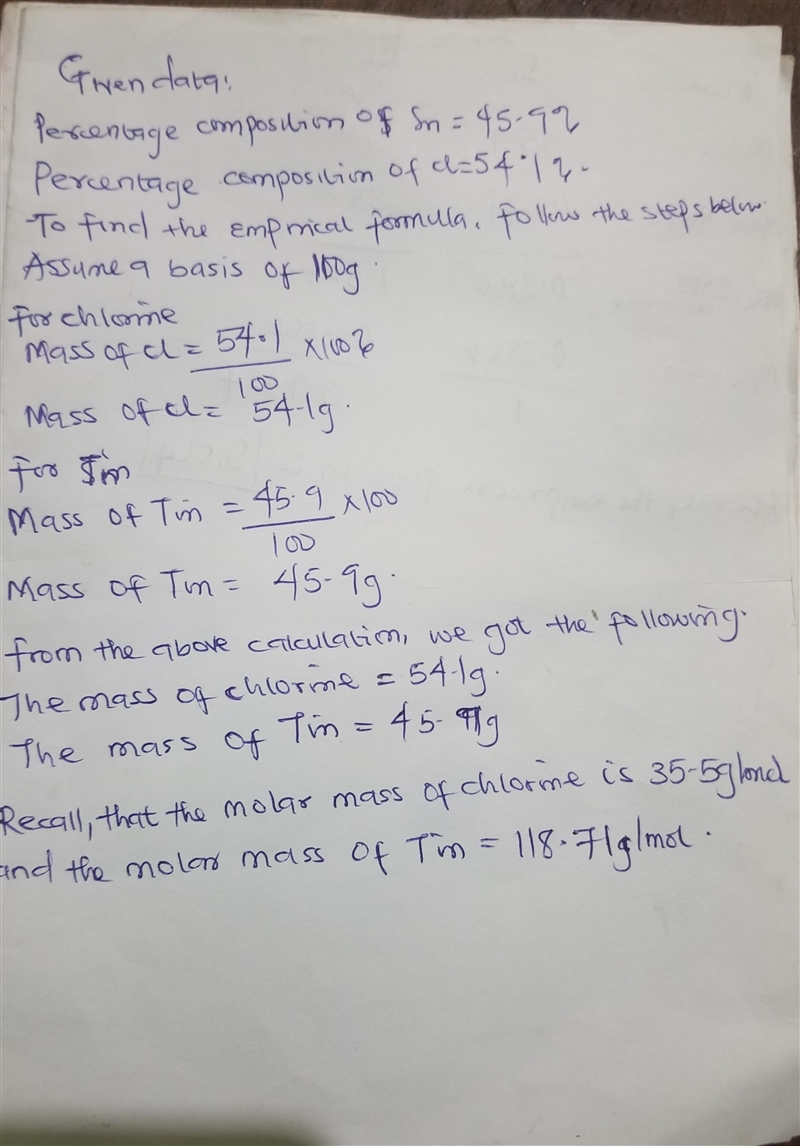 Given data:
Percentage composition of Sn = 45.9%
Percentage composition of cl = 54.1%.
To find the emprical formula, follow the steps below
Assume a basis of 100g.
for chlorine
Mass of cl = 54.1 × 100%
100
Mass of cl = 54.1g.
for Tin
Mass of Tin = 45.9 × 100
100
Mass of Tin = 45.9g.
from the above calculation, we got the following.
The mass of chlorine = 54.1g.
The mass of Tin = 45.9g
Recall, that the molar mass of chlorine is 35.5g/mol
and the molar mass of Tin = 118.71g/mol.